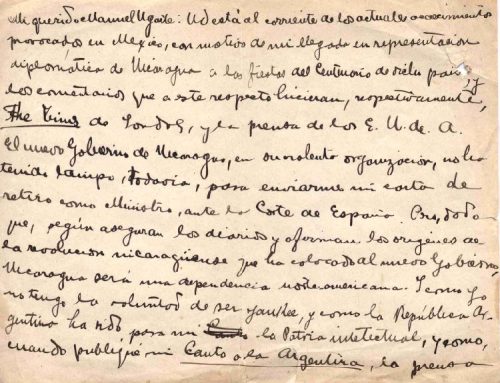 Mi querido Manuel Ugarte: Ud está al corriente de los actuales acontecimientos
provocados en Mexico, con motivo de mi llegada en representacion
diplomática de Nicaragua a las fiestas del Centenario de dicho país y
los comentarios que a este respecto hicieran, respectivamente,
The Times de Londres, y la prensa de los E. U. de A.
El nuevo Gobierno de Nicaragua, en su violenta organización, no ha
tenido tiempo, todavia, para enviarme mi carta de
retiro como Ministro, ante la Corte de España. Pero, dado
que, según aseguran los diarios y afirman los orígenes de
la revolucion nicaragüense que ha colocado al nuevo Gobierno,
Nicaragua será una dependencia norteamericana. I como yo
no tengo la voluntad de ser yankee, y como la República Ar-
gentina ha sido para mi la Patria intelectual, y como,
cuando publiqué mi Canto a la Argentina, la prensa